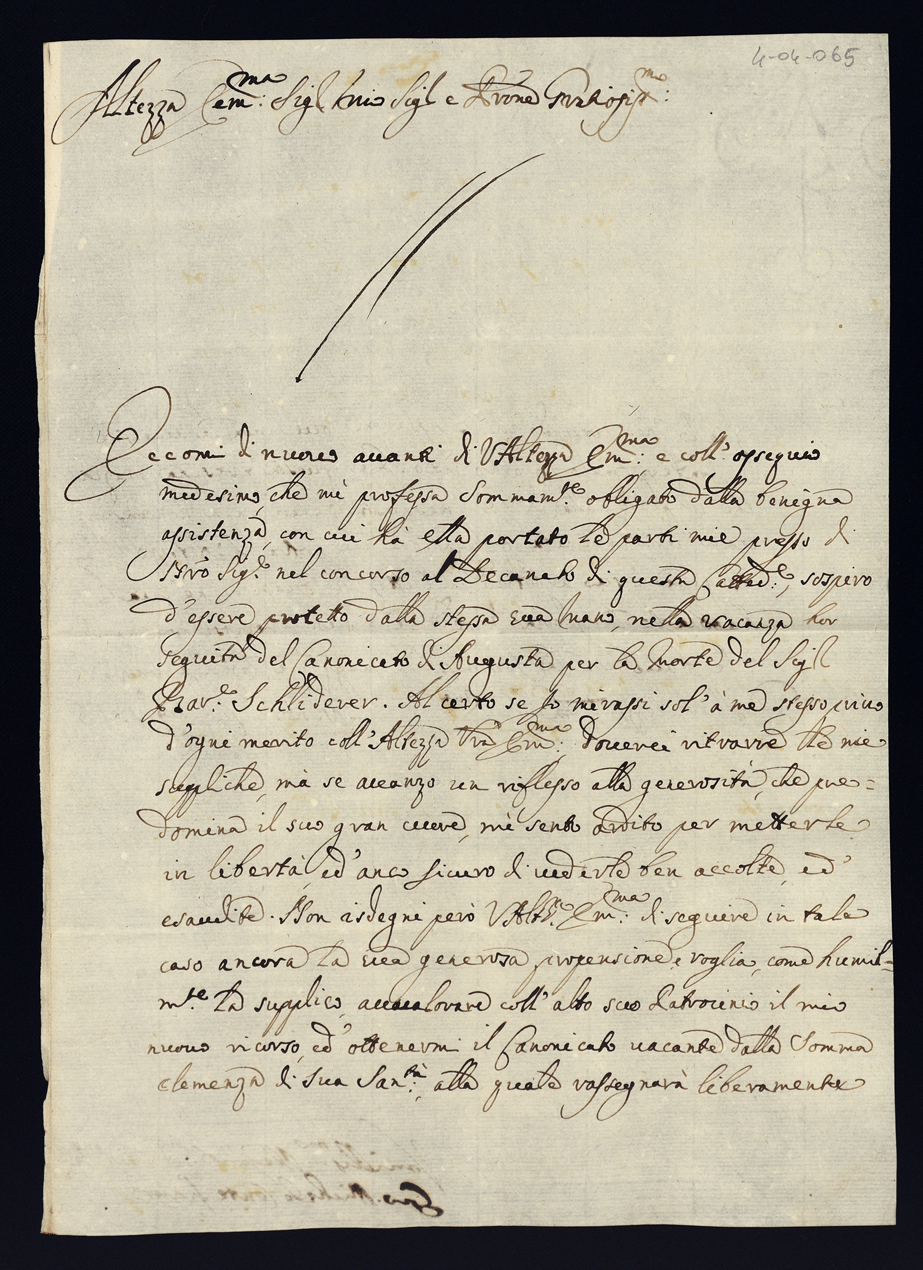 4-04-065
Altezza Em.ma: Sig.r mio Sig.r e Prone Gratiosiss.mo:
Eccomi di nuovo avanti di V Altezza Em.ma: e coll' ossequio
medesimo, che mi professa sommam.te obligato dalla benigna
assistenza, con cui hà ella portato le parti mie presso di
Nrõ Sig.e nel concorso al Decanato di questa Catted.e, sospiro
d'essere protetto dalla stessa sua mano, nella vacanza hor
seguita del Canonicato di Augusta per la morte del Sig.r
Bar.e Schliderer. Al certo se Jo mirassi sol' à me stesso privo
d'ogni merito coll' Altezza Vrã Em.ma: doverei ritrarre le mie
suppliche, mà se avanzo un riflesso alla generosità, che pre=
domina il suo gran cuore, mi sento ardito per metterle
in libertà, ed' anco sicuro di vederle ben accolte, ed'
esaudite. Non isdegni però V Alt.a Em.ma: di seguire in tale
caso ancora la sua generosa propensione, e voglia, come humil=
m.te la supplico, avvalorare coll' alto suo Patrocinio il mio
nuovo ricorso, ed' ottenermi il Canonicato vacante dalla somma
clemenza di sua San.tà:, alla quale rassegnarà liberamente